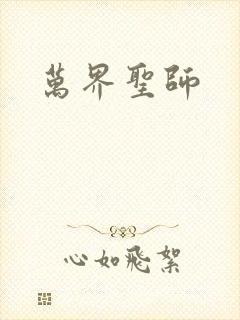 萬界聖師
心如飛絮